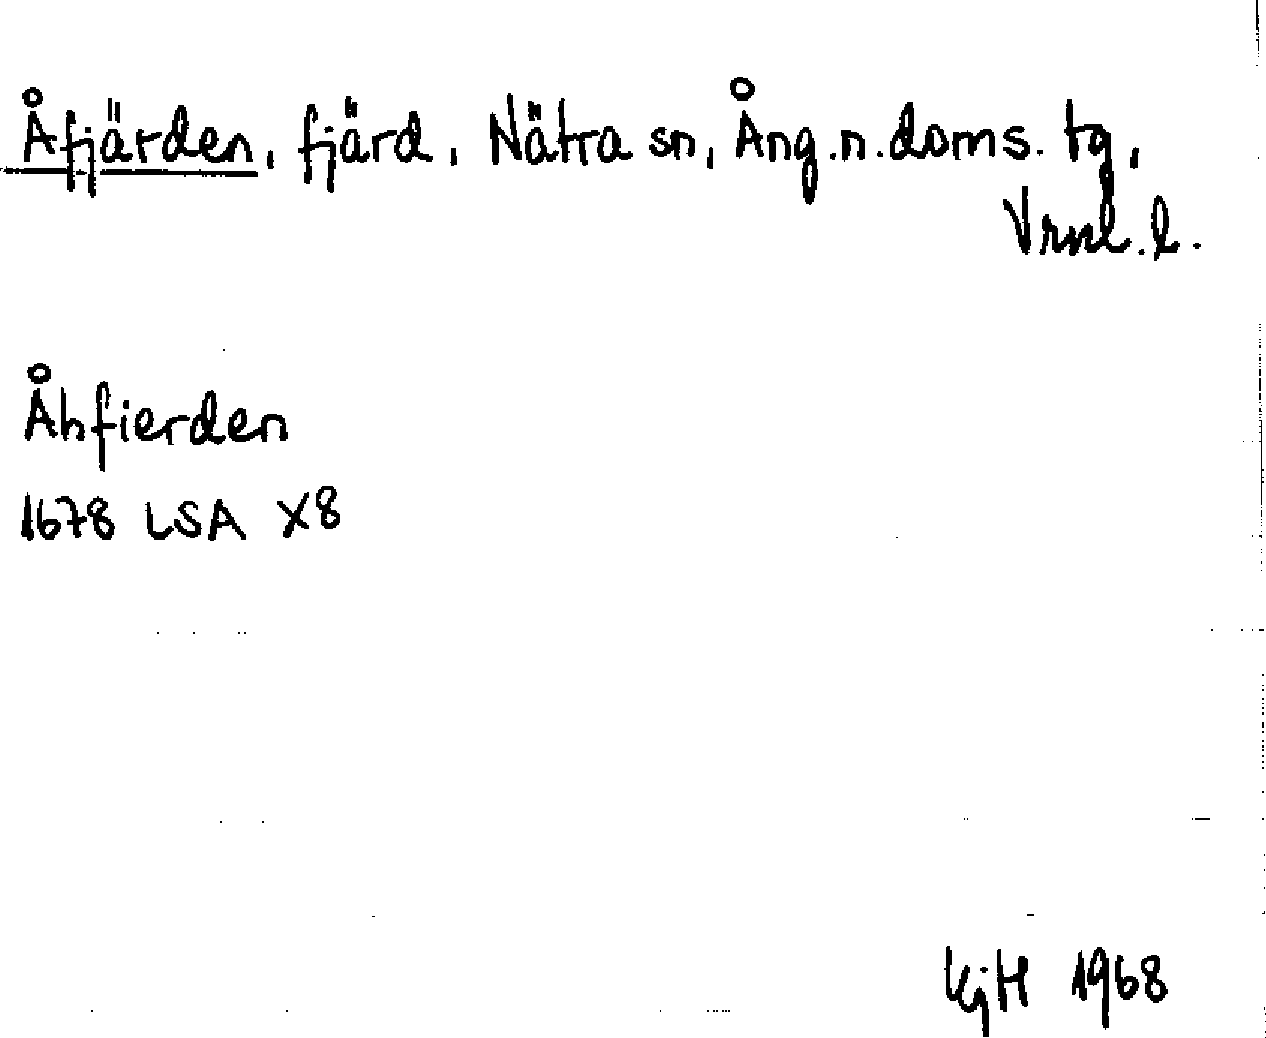 Åfjärden, fjärd, Nätra sn, Ång.n.doms. tg,
Vrnl. l.
Åhfierden
1678 LSA X8
KjH 1968